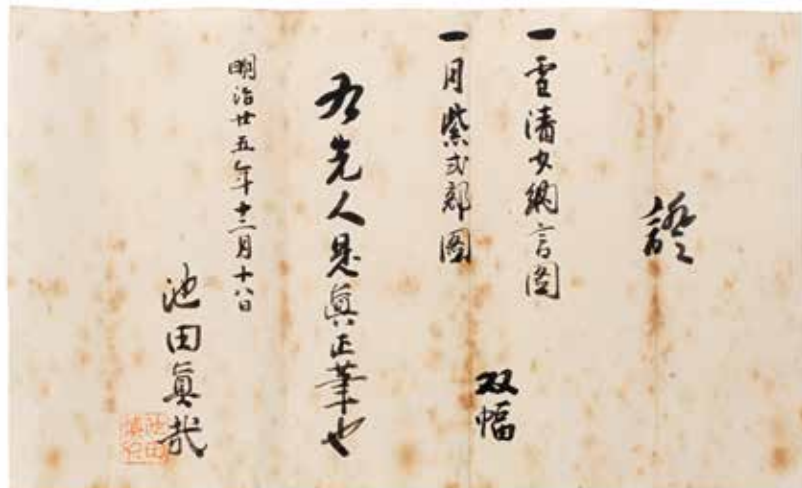 證
一雪清少納言圖
一月紫式部圖
双幅
右先人是眞正筆也
明治廿五年十二月十八日
池田眞哉
池田